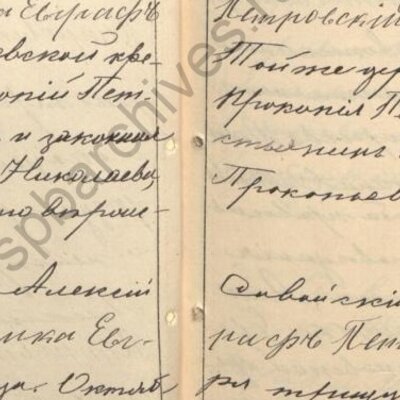 Евграфъ
евской кре-
копій Пет-
и законная
Николаева,
Алексій
мка Ев-
за. Октяб
Петровскій
Той же дер
Прокопія П
стьянинъ
Прокопьев
Савойскі
рафъ Пет
ря трищ
spbarchives.ru